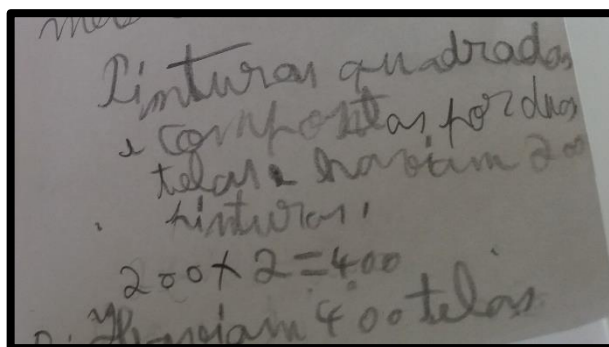 Pinturas quadradas
e compostas por duas
telas haviam 200
pinturas,
200 x 2 = 400
haviam 400 telas